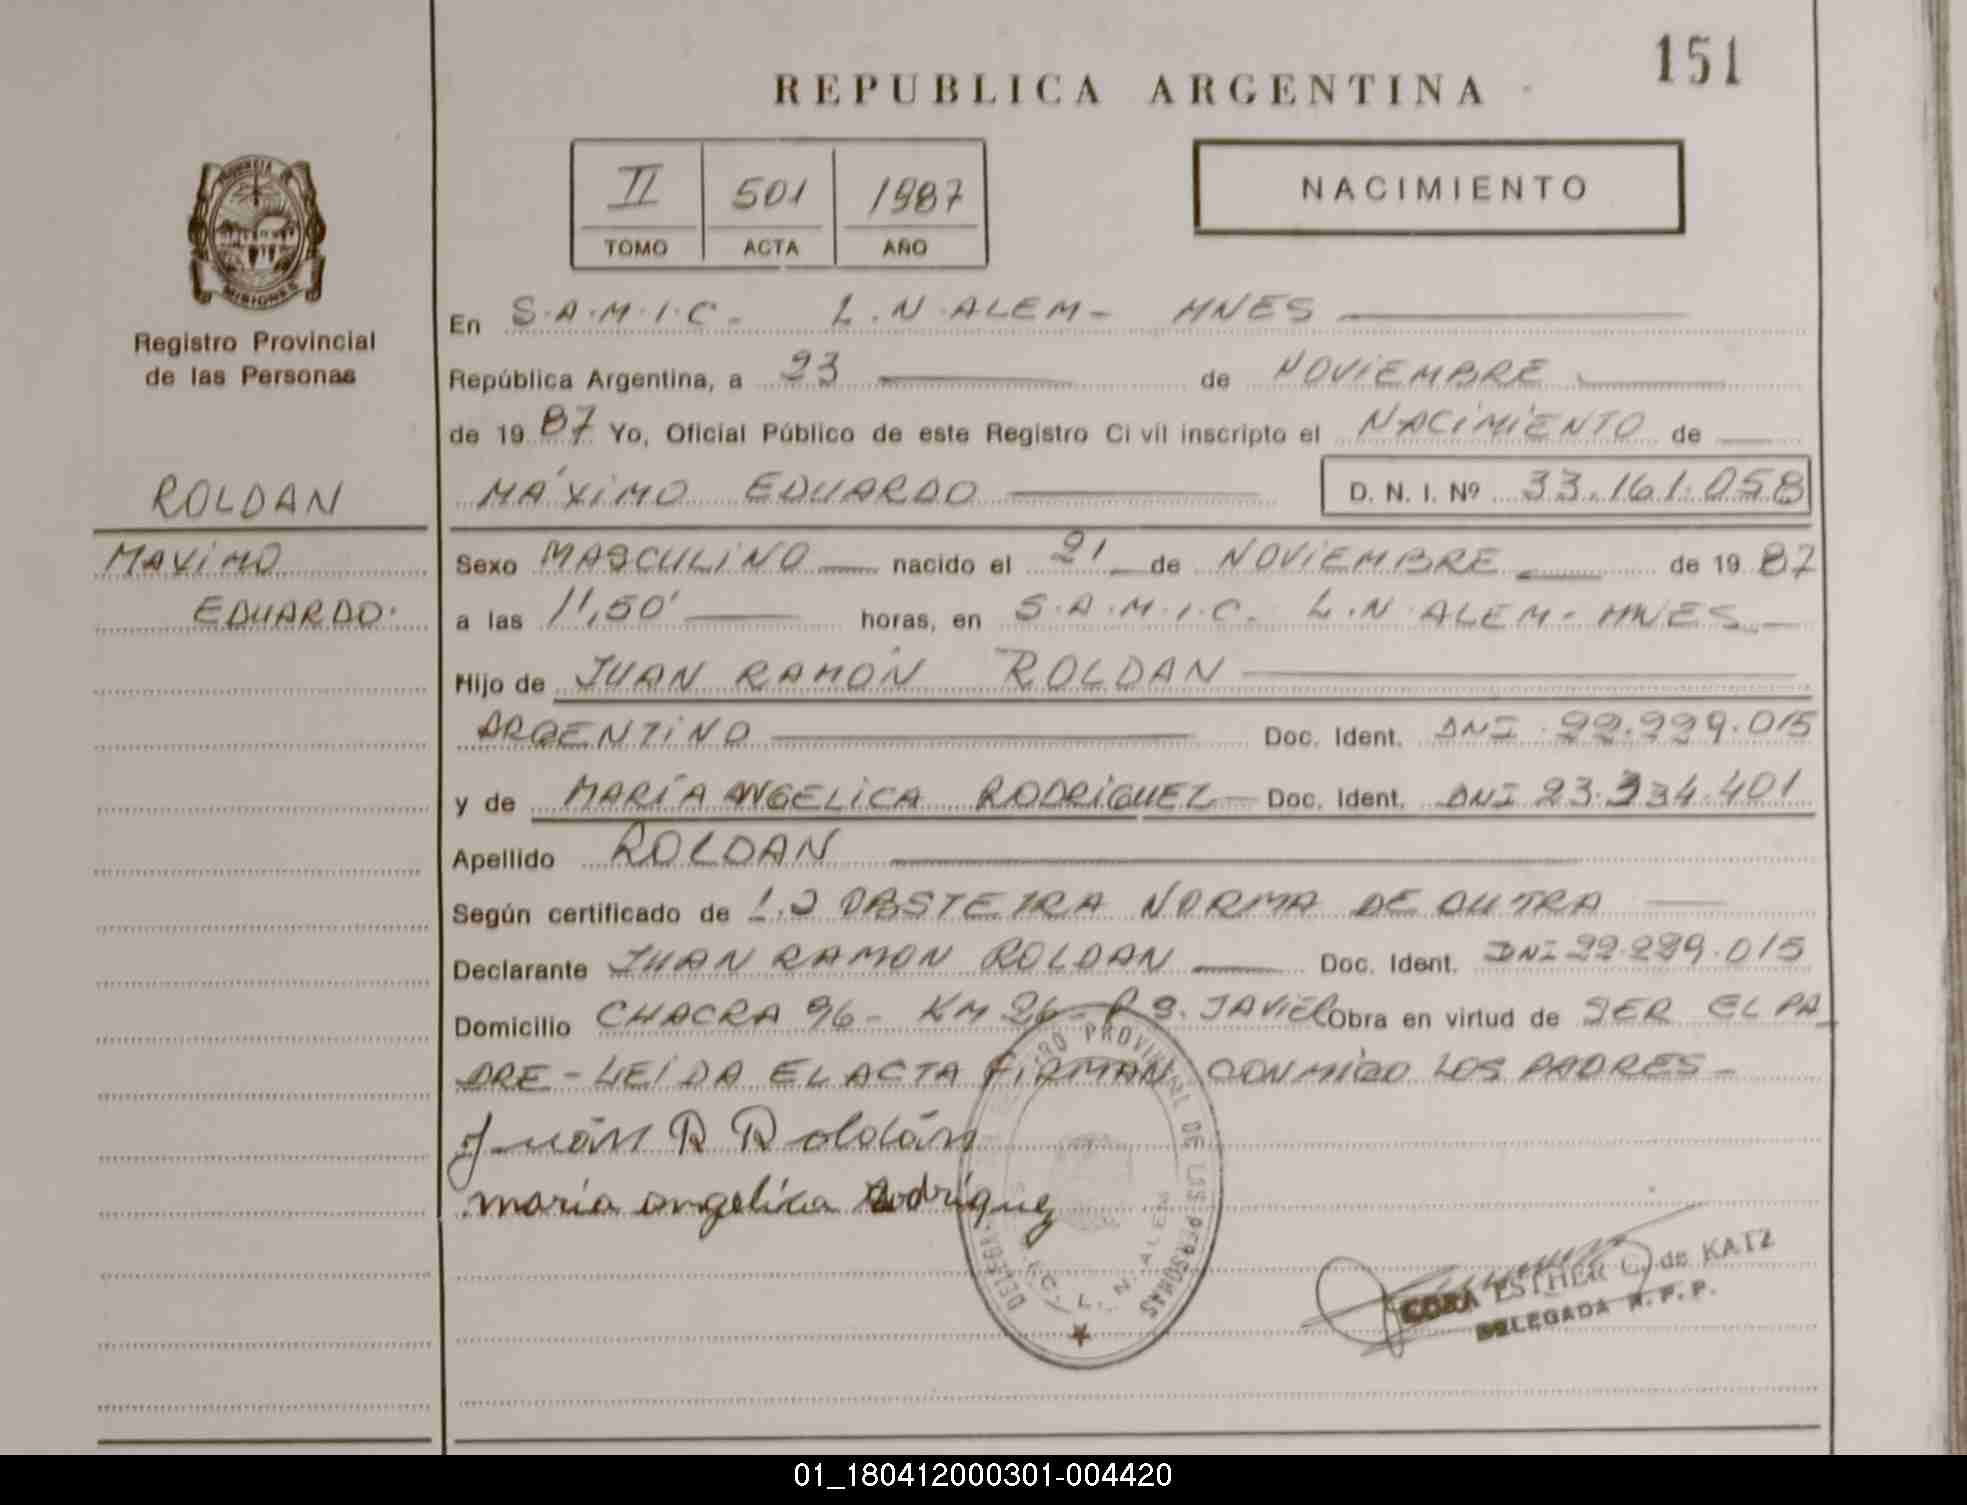 151
REPUBLICA ARGENTINA
II 501 1987
TOMO ACTA AÑO
NACIMIENTO
PROVINCIA DE
MISIONES
Registro Provincial
de las Personas
ROLDAN
MAXIMO
EDUARDO.
En S.A.M.I.C. - L.N.ALEM - MNES
República Argentina, a 23 de NOVIEMBRE
de 19 87 Yo, Oficial Público de este Registro Civil inscripto el NACIMIENTO de
MÁXIMO EDUARDO D. N. I. Nº 33.161.058
Sexo MASCULINO nacido el 21 de NOVIEMBRE de 19 87
a las 11,50' horas, en S.A.M.I.C. L.N.ALEM - MNES
Hijo de JUAN RAMÓN ROLDAN
ARGENTINO Doc. Ident. DNI 22.229.015
y de MARÍA ANGELICA RODRIGUEZ Doc. Ident. DNI 23.334.401
Apellido ROLDAN
Según certificado de OBSTETRA NORMA DE DUTRA
Declarante JUAN RAMON ROLDAN Doc. Ident. DNI 22.229.015
Domicilio CHACRA 96 - KM 26 - JAVIER Obra en virtud de SER EL PA
DRE - LEIDA EL ACTA FIRMAN CONMIGO LOS PADRES -
Juán R Roldán
maria angelica Rodriguez
DELEG. REGISTRO PROVINCIAL DE LAS PERSONAS
L. N. ALEM
CORA ESTHER C. de KATZ
DELEGADA R. P. P.
01_180412000301-004420